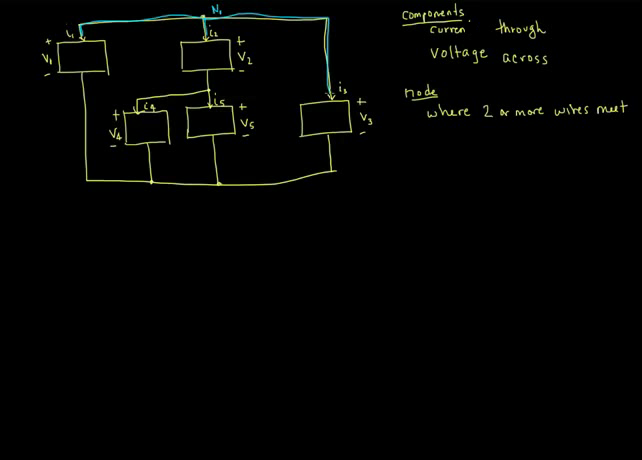 N1
i1
i2
+
V1
-
+
V2
-
i3
+
V3
-
i4
+
V4
-
i5
+
V5
-
Components
Curren through
Voltage across
node
where 2 or more wires meet